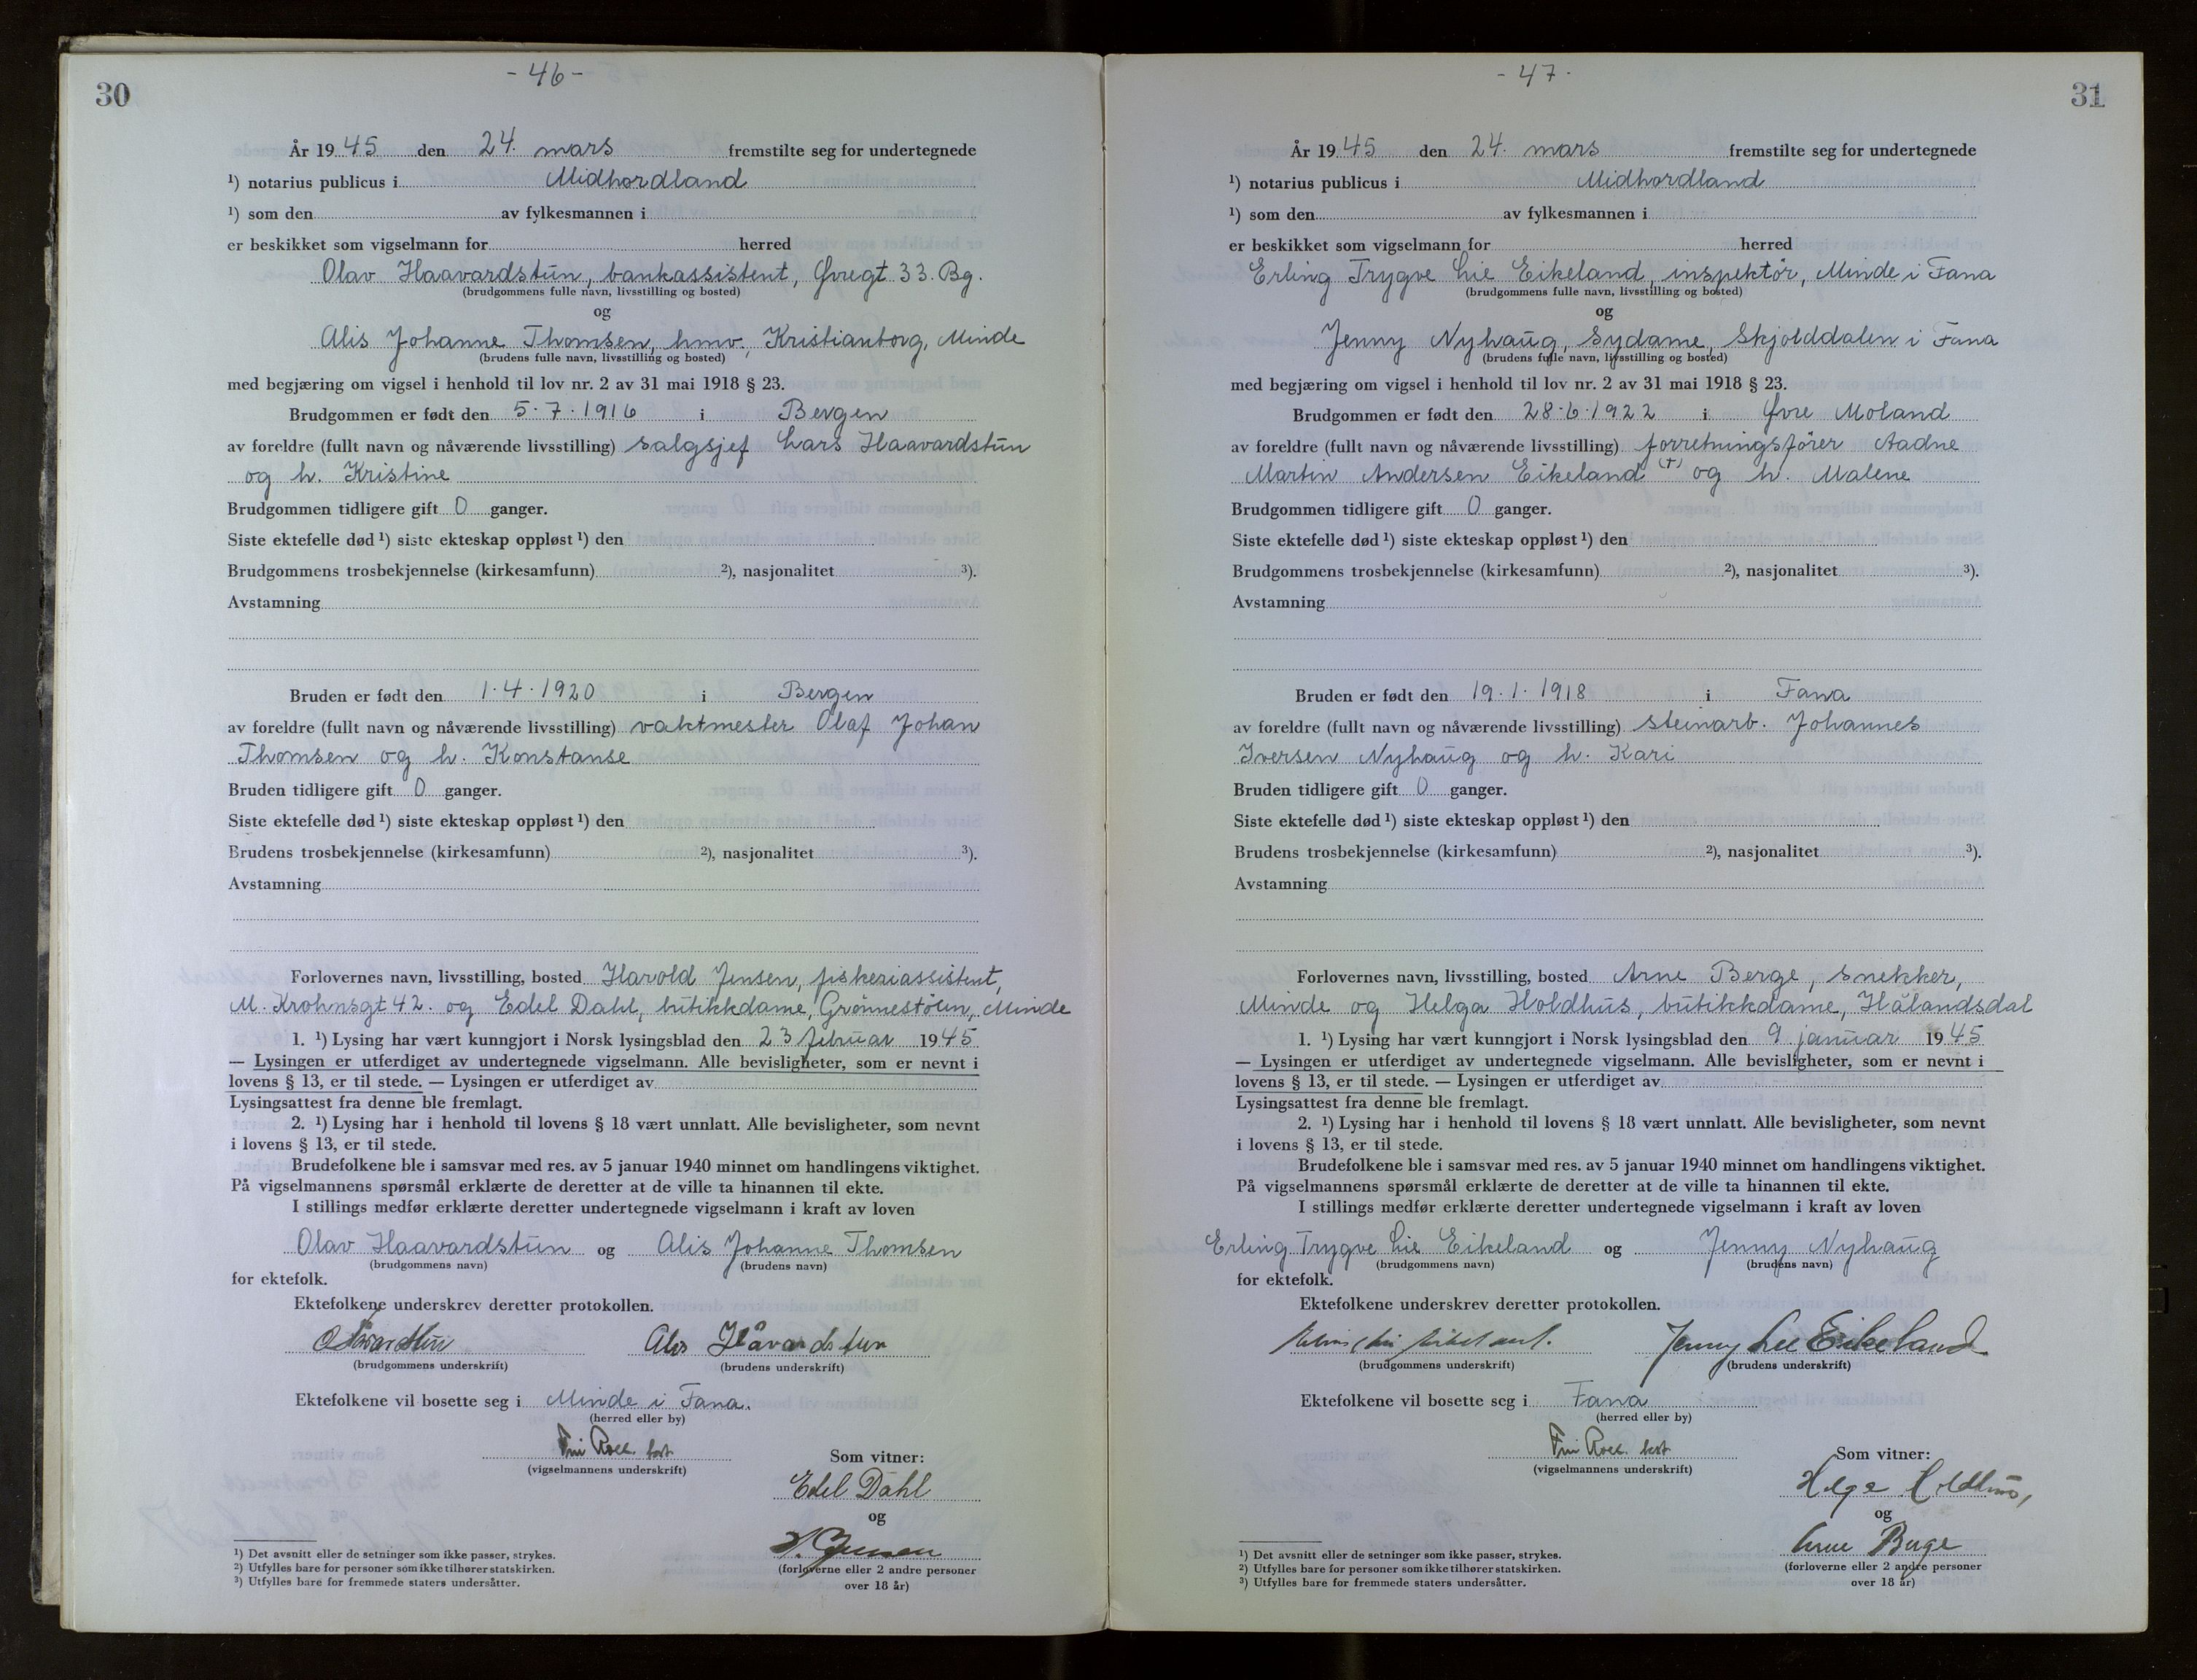 30
- 46 -
År 1945 den 24. mars fremstilte seg for undertegnede
¹) notarius publicus i Midhordland
¹) som den av fylkesmannen i
er beskikket som vigselmann for herred
Olav Haavardstun, bankassistent, Øvregt 33. Bg.
(brudgommens fulle navn, livsstilling og bosted)
og
Alis Johanne Thomsen, hmv., Kristianborg, Minde
(brudens fulle navn, livsstilling og bosted)
med begjæring om vigsel i henhold til lov nr. 2 av 31 mai 1918 § 23.
Brudgommen er født den 5.7.1916 i Bergen
av foreldre (fullt navn og nåværende livsstilling) salgsjef Lars Haavardstun
og h. Kristine
Brudgommen tidligere gift 0 ganger.
Siste ektefelle død ¹) siste ekteskap oppløst ¹) den
Brudgommens trosbekjennelse (kirkesamfunn) ²), nasjonalitet ³).
Avstamning
Bruden er født den 1.4.1920 i Bergen
av foreldre (fullt navn og nåværende livsstilling) vaktmester Olaf Johan
Thomsen og h. Konstanse
Bruden tidligere gift 0 ganger.
Siste ektefelle død ¹) siste ekteskap oppløst ¹) den
Brudens trosbekjennelse (kirkesamfunn) ²), nasjonalitet ³).
Avstamning
Forlovernes navn, livsstilling, bosted Harold Jensen, fiskeriassistent,
M. Krohnsgt 42. og Edel Dahl, butikkdame, Grønnestølen, Minde
1. ¹) Lysing har vært kunngjort i Norsk lysingsblad den 23 februar 1945
— Lysingen er utferdiget av undertegnede vigselmann. Alle bevisligheter, som er nevnt i
lovens § 13, er til stede. — Lysingen er utferdiget av
Lysingsattest fra denne ble fremlagt.
2. ¹) Lysing har i henhold til lovens § 18 vært unnlatt. Alle bevisligheter, som nevnt
i lovens § 13, er til stede.
Brudefolkene ble i samsvar med res. av 5 januar 1940 minnet om handlingens viktighet.
På vigselmannens spørsmål erklærte de deretter at de ville ta hinannen til ekte.
I stillings medfør erklærte deretter undertegnede vigselmann i kraft av loven
Olav Haavardstun og Alis Johanne Thomsen
(brudgommens navn) (brudens navn)
for ektefolk.
Ektefolkene underskrev deretter protokollen.
Alis Håvardstun
(brudgommens underskrift) (brudens underskrift)
Ektefolkene vil bosette seg i Minde i Fana.
(herred eller by)
(vigselmannens underskrift)
Som vitner:
Edel Dahl
og
H. Jensen
(forloverne eller 2 andre personer
over 18 år)
¹) Det avsnitt eller de setninger som ikke passer, strykes.
²) Utfylles bare for personer som ikke tilhører statskirken.
³) Utfylles bare for fremmede staters undersåtter.
31
- 47 -
År 1945 den 24. mars fremstilte seg for undertegnede
¹) notarius publicus i Midhordland
¹) som den av fylkesmannen i
er beskikket som vigselmann for herred
Erling Trygve Lie Eikeland, inspektør, Minde i Fana
(brudgommens fulle navn, livsstilling og bosted)
og
Jenny Nyhaug, sydame, Skjolddalen i Fana
(brudens fulle navn, livsstilling og bosted)
med begjæring om vigsel i henhold til lov nr. 2 av 31 mai 1918 § 23.
Brudgommen er født den 28.6.1922 i Øvre Moland
av foreldre (fullt navn og nåværende livsstilling) forretningsfører Aadne
Martin Andersen Eikeland (†) og h. Malene
Brudgommen tidligere gift 0 ganger.
Siste ektefelle død ¹) siste ekteskap oppløst ¹) den
Brudgommens trosbekjennelse (kirkesamfunn) ²), nasjonalitet ³).
Avstamning
Bruden er født den 19.1.1918 i Fana
av foreldre (fullt navn og nåværende livsstilling) steinarb. Johannes
Iversen Nyhaug og h. Kari
Bruden tidligere gift 0 ganger.
Siste ektefelle død ¹) siste ekteskap oppløst ¹) den
Brudens trosbekjennelse (kirkesamfunn) ²), nasjonalitet ³).
Avstamning
Forlovernes navn, livsstilling, bosted Arne Berge, snekker,
Minde og Helga Holdhus, butikkdame, Hålandsdal
1. ¹) Lysing har vært kunngjort i Norsk lysingsblad den 9. januar 1945
— Lysingen er utferdiget av undertegnede vigselmann. Alle bevisligheter, som er nevnt i
lovens § 13, er til stede. — Lysingen er utferdiget av
Lysingsattest fra denne ble fremlagt.
2. ¹) Lysing har i henhold til lovens § 18 vært unnlatt. Alle bevisligheter, som nevnt
i lovens § 13, er til stede.
Brudefolkene ble i samsvar med res. av 5 januar 1940 minnet om handlingens viktighet.
På vigselmannens spørsmål erklærte de deretter at de ville ta hinannen til ekte.
I stillings medfør erklærte deretter undertegnede vigselmann i kraft av loven
Erling Trygve Lie Eikeland og Jenny Nyhaug
(brudgommens navn) (brudens navn)
for ektefolk.
Ektefolkene underskrev deretter protokollen.
Jenny Lie Eikeland
(brudgommens underskrift) (brudens underskrift)
Ektefolkene vil bosette seg i Fana
(herred eller by)
(vigselmannens underskrift)
Som vitner:
Helga Holdhus,
og
Arne Berge
(forloverne eller 2 andre personer
over 18 år)
¹) Det avsnitt eller de setninger som ikke passer, strykes.
²) Utfylles bare for personer som ikke tilhører statskirken.
³) Utfylles bare for fremmede staters undersåtter.